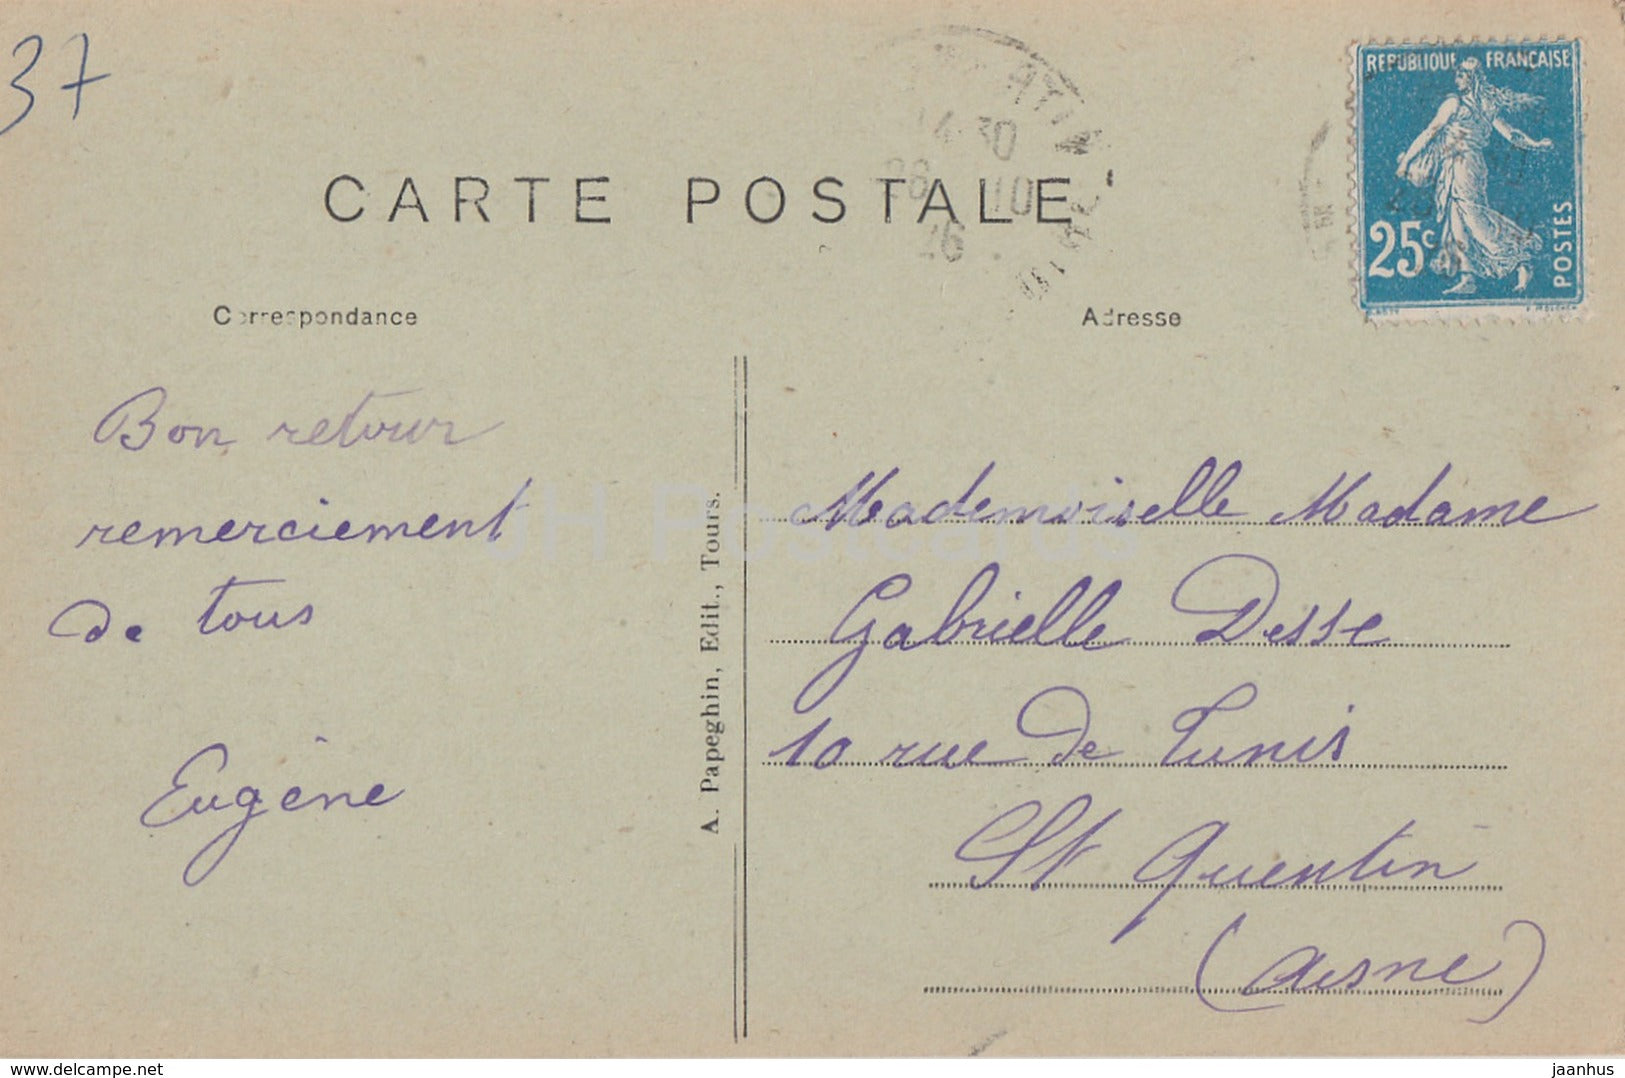 37
REPUBLIQUE FRANÇAISE
25c
POSTES
14 30
28 10
26
CARTE POSTALE
Correspondance
Adresse
Bon retour
remerciement
de tous
Eugène
A. Papeghin, Edit., Tours.
JH Postcards
Mademoiselle Madame
Gabrielle Desse
10 rue de Tunis
St Quentin
(Aisne)
www.delcampe.net
jaanhus